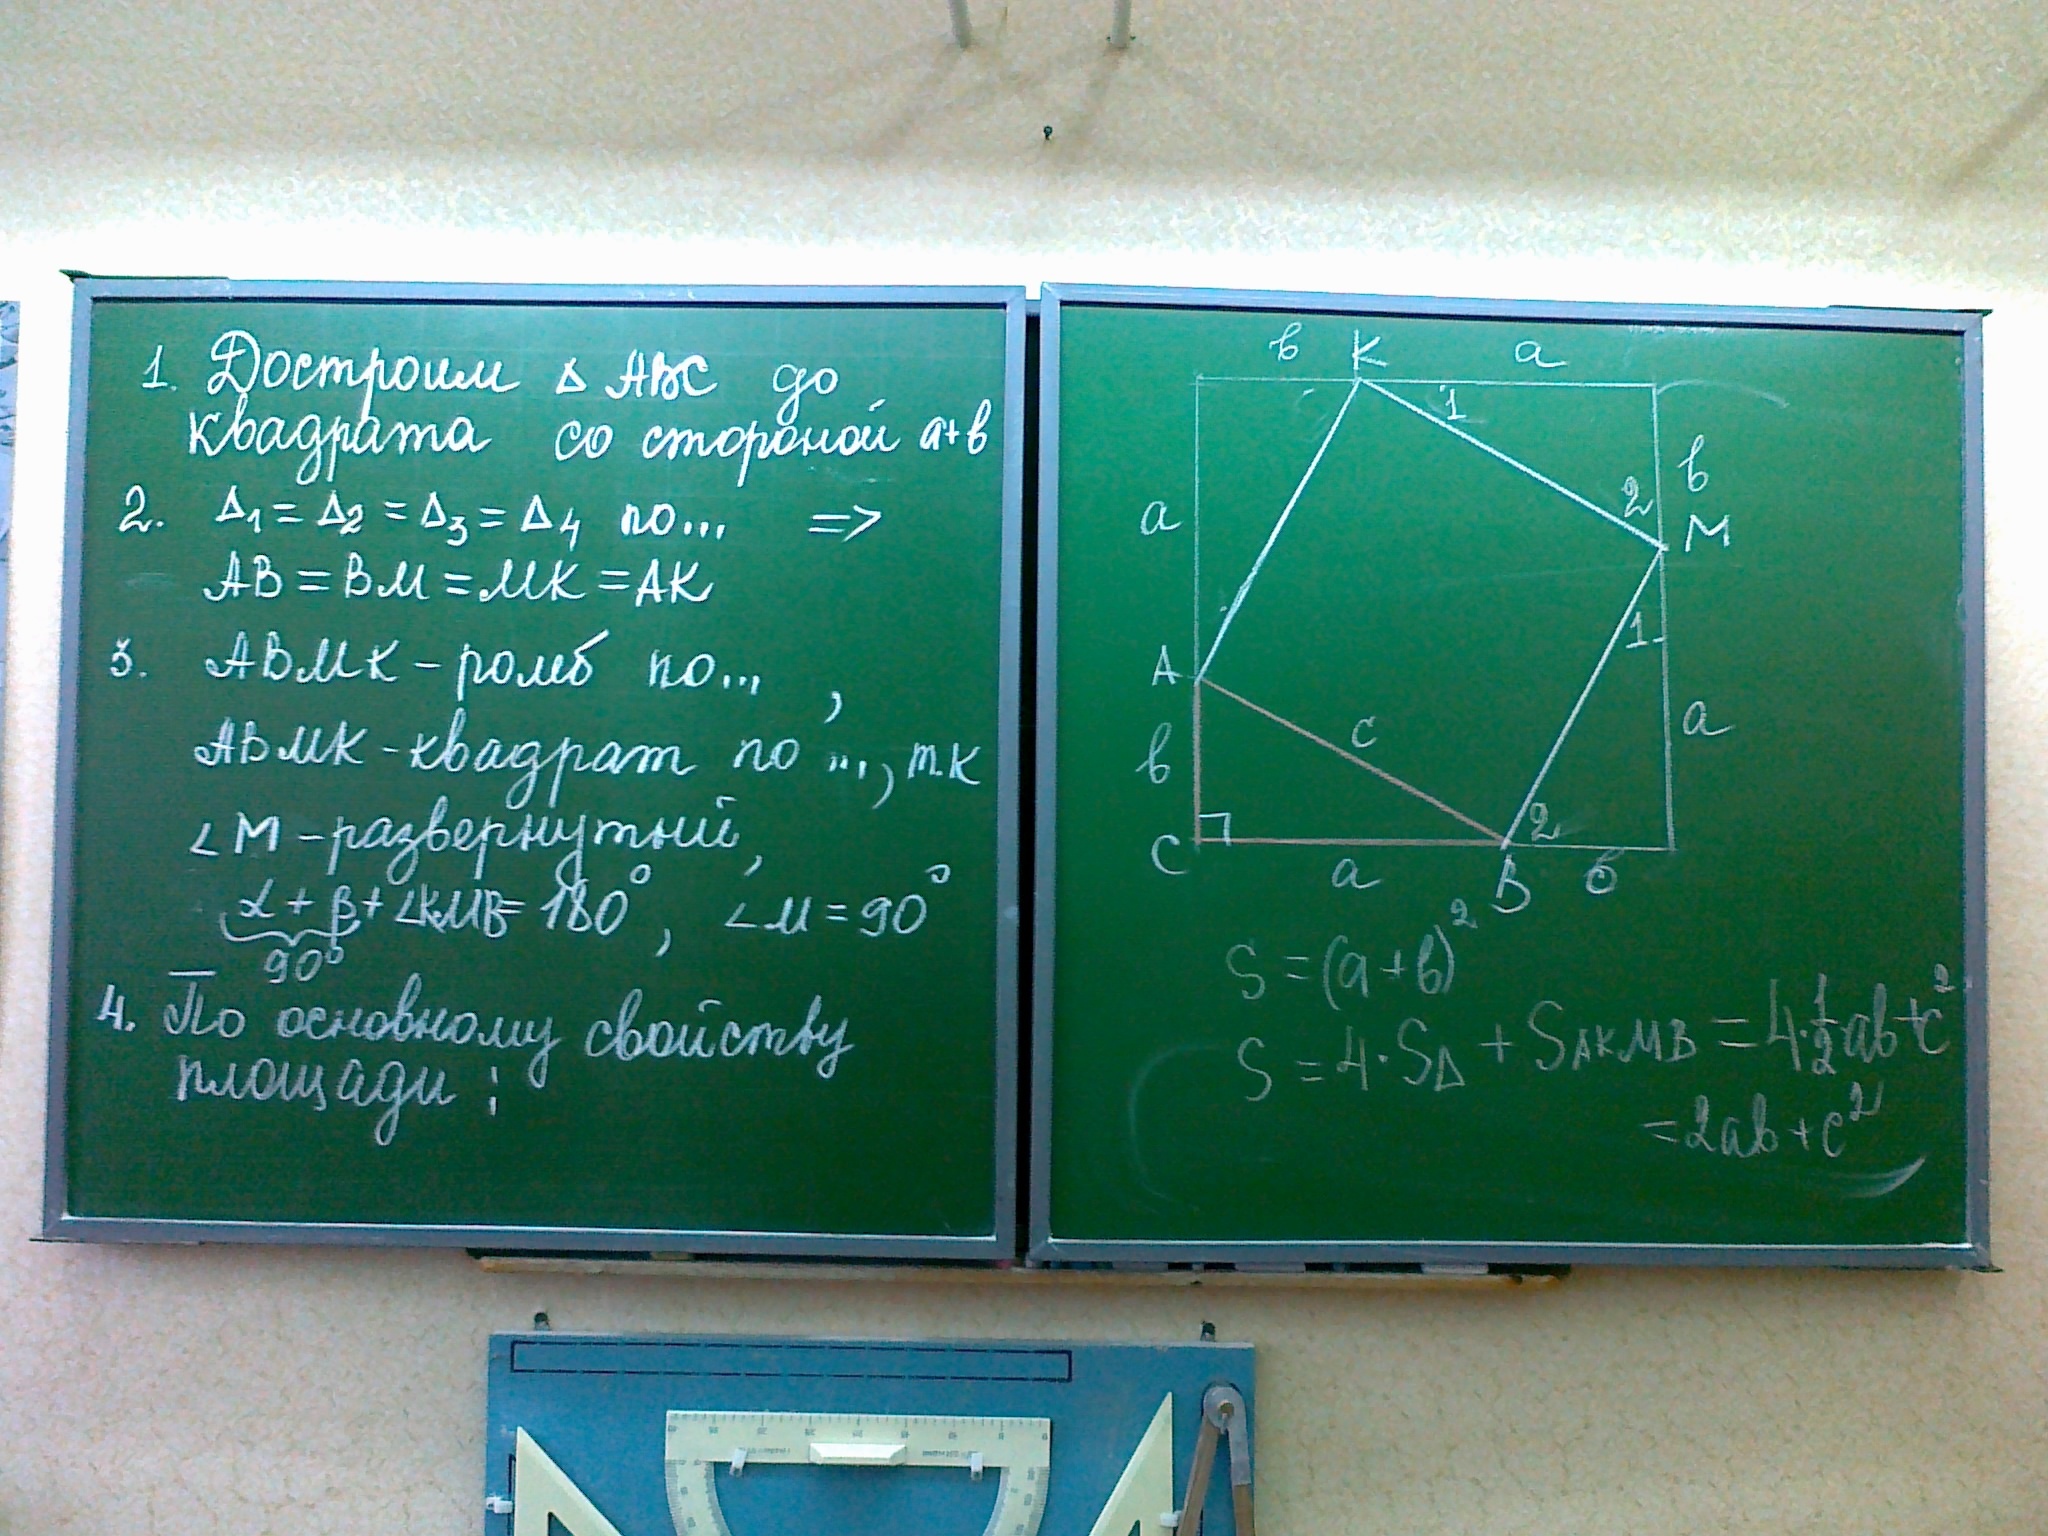 1. Достроим Δ АВС до
квадрата со стороной а+в
2. Δ1 = Δ2 = Δ3 = Δ4 по... =>
АВ = ВМ = МК = АК
3. АВМК – ромб по... ,
АВМК – квадрат по ..., т.к
∠М – развернутый,
α + β + ∠КМВ = 180°, ∠М = 90°
90°
4. По основному свойству
площади :
в К а
1
в
2
М
а
1
А
с
а
в
2
С а В б
S = (а+в)²
S = 4·SΔ + SАКМВ = 4·1/2ав+с²
=2ав+с²